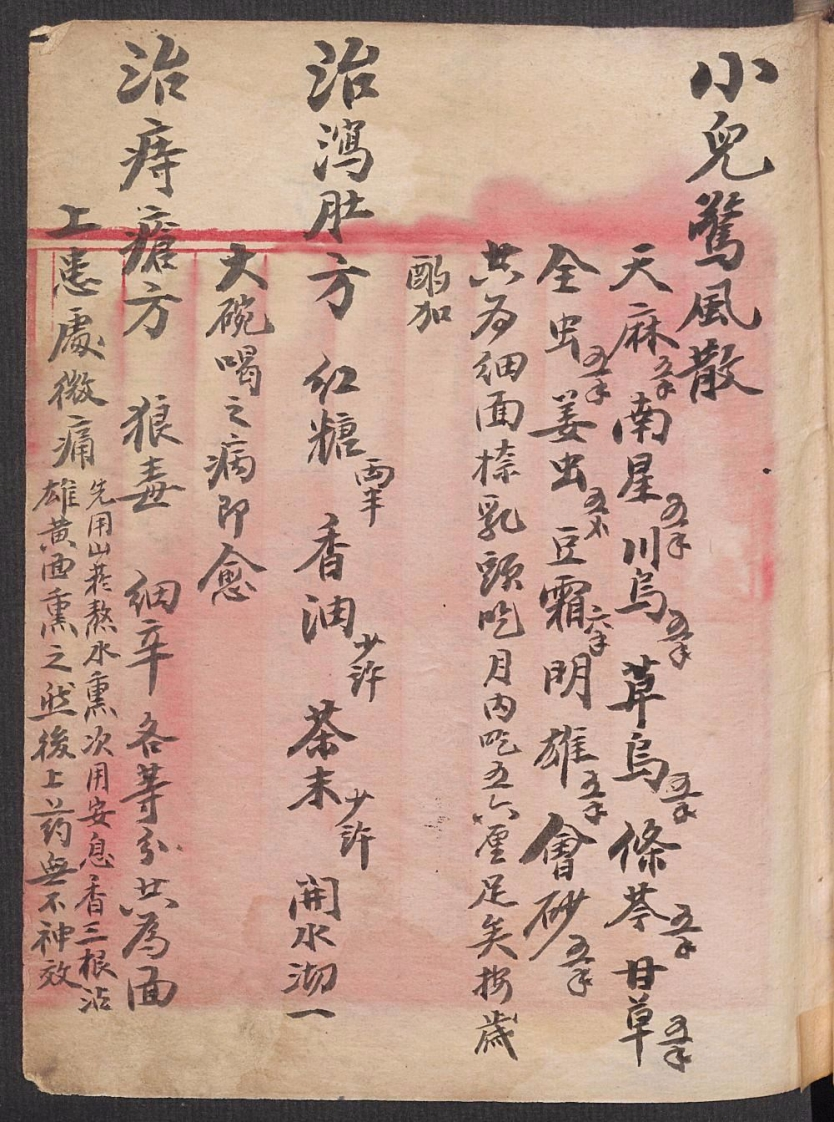 小兒驚風散
天麻五錢南星五錢川烏五錢草烏五錢條芩五錢甘草五錢
全虫五錢姜虫五个豆霜六錢明雄五錢會砂五錢
共为细面搽乳頭吃月内吃五六厘足矣按歲
酌加
治瀉肚方 红糖兩半 香油少許 茶末少許 開水沏一
大碗喝之病即愈
治痔瘡方 狼毒 细辛 各等分共為面
上患處微痛先用山葱熬水熏次用安息香三根沾
雄黄面熏之然後上药無不神效